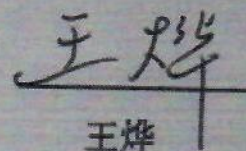 王烨
王烨